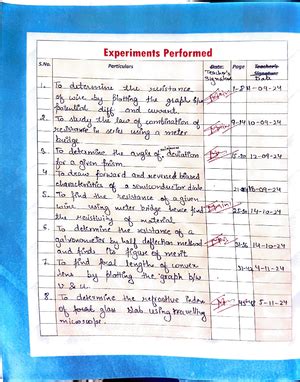 Experiments Performed
S.No. Particulars Date: Teacher's Signature Page Teacher's Signature Date
1. To determine the resistance
of wire by plotting the graph b/w
potential diff and current 1-8 11-09-24
2. To study the law of combination of
resistance in series using a meter
bridge 9-14 10-09-24
3. To determine the angle of deviation
for a given prism 15-20 12-09-24
4. To draw forward and reversed biased
characteristics of a semiconductor diode 18-09-24
5. To find the resistance of a given
wire using meter bridge hence find
the resistivity of material 14-10-24
6. To determine the resistance of a
galvanometer by half deflection method
and finds its figure of merit 14-10-24
7. To find focal lengths of convex
lens by plotting the graph b/w
v & u 4-11-24
8. To determine the refractive index
of glass slab using travelling
microscope. 5-11-24